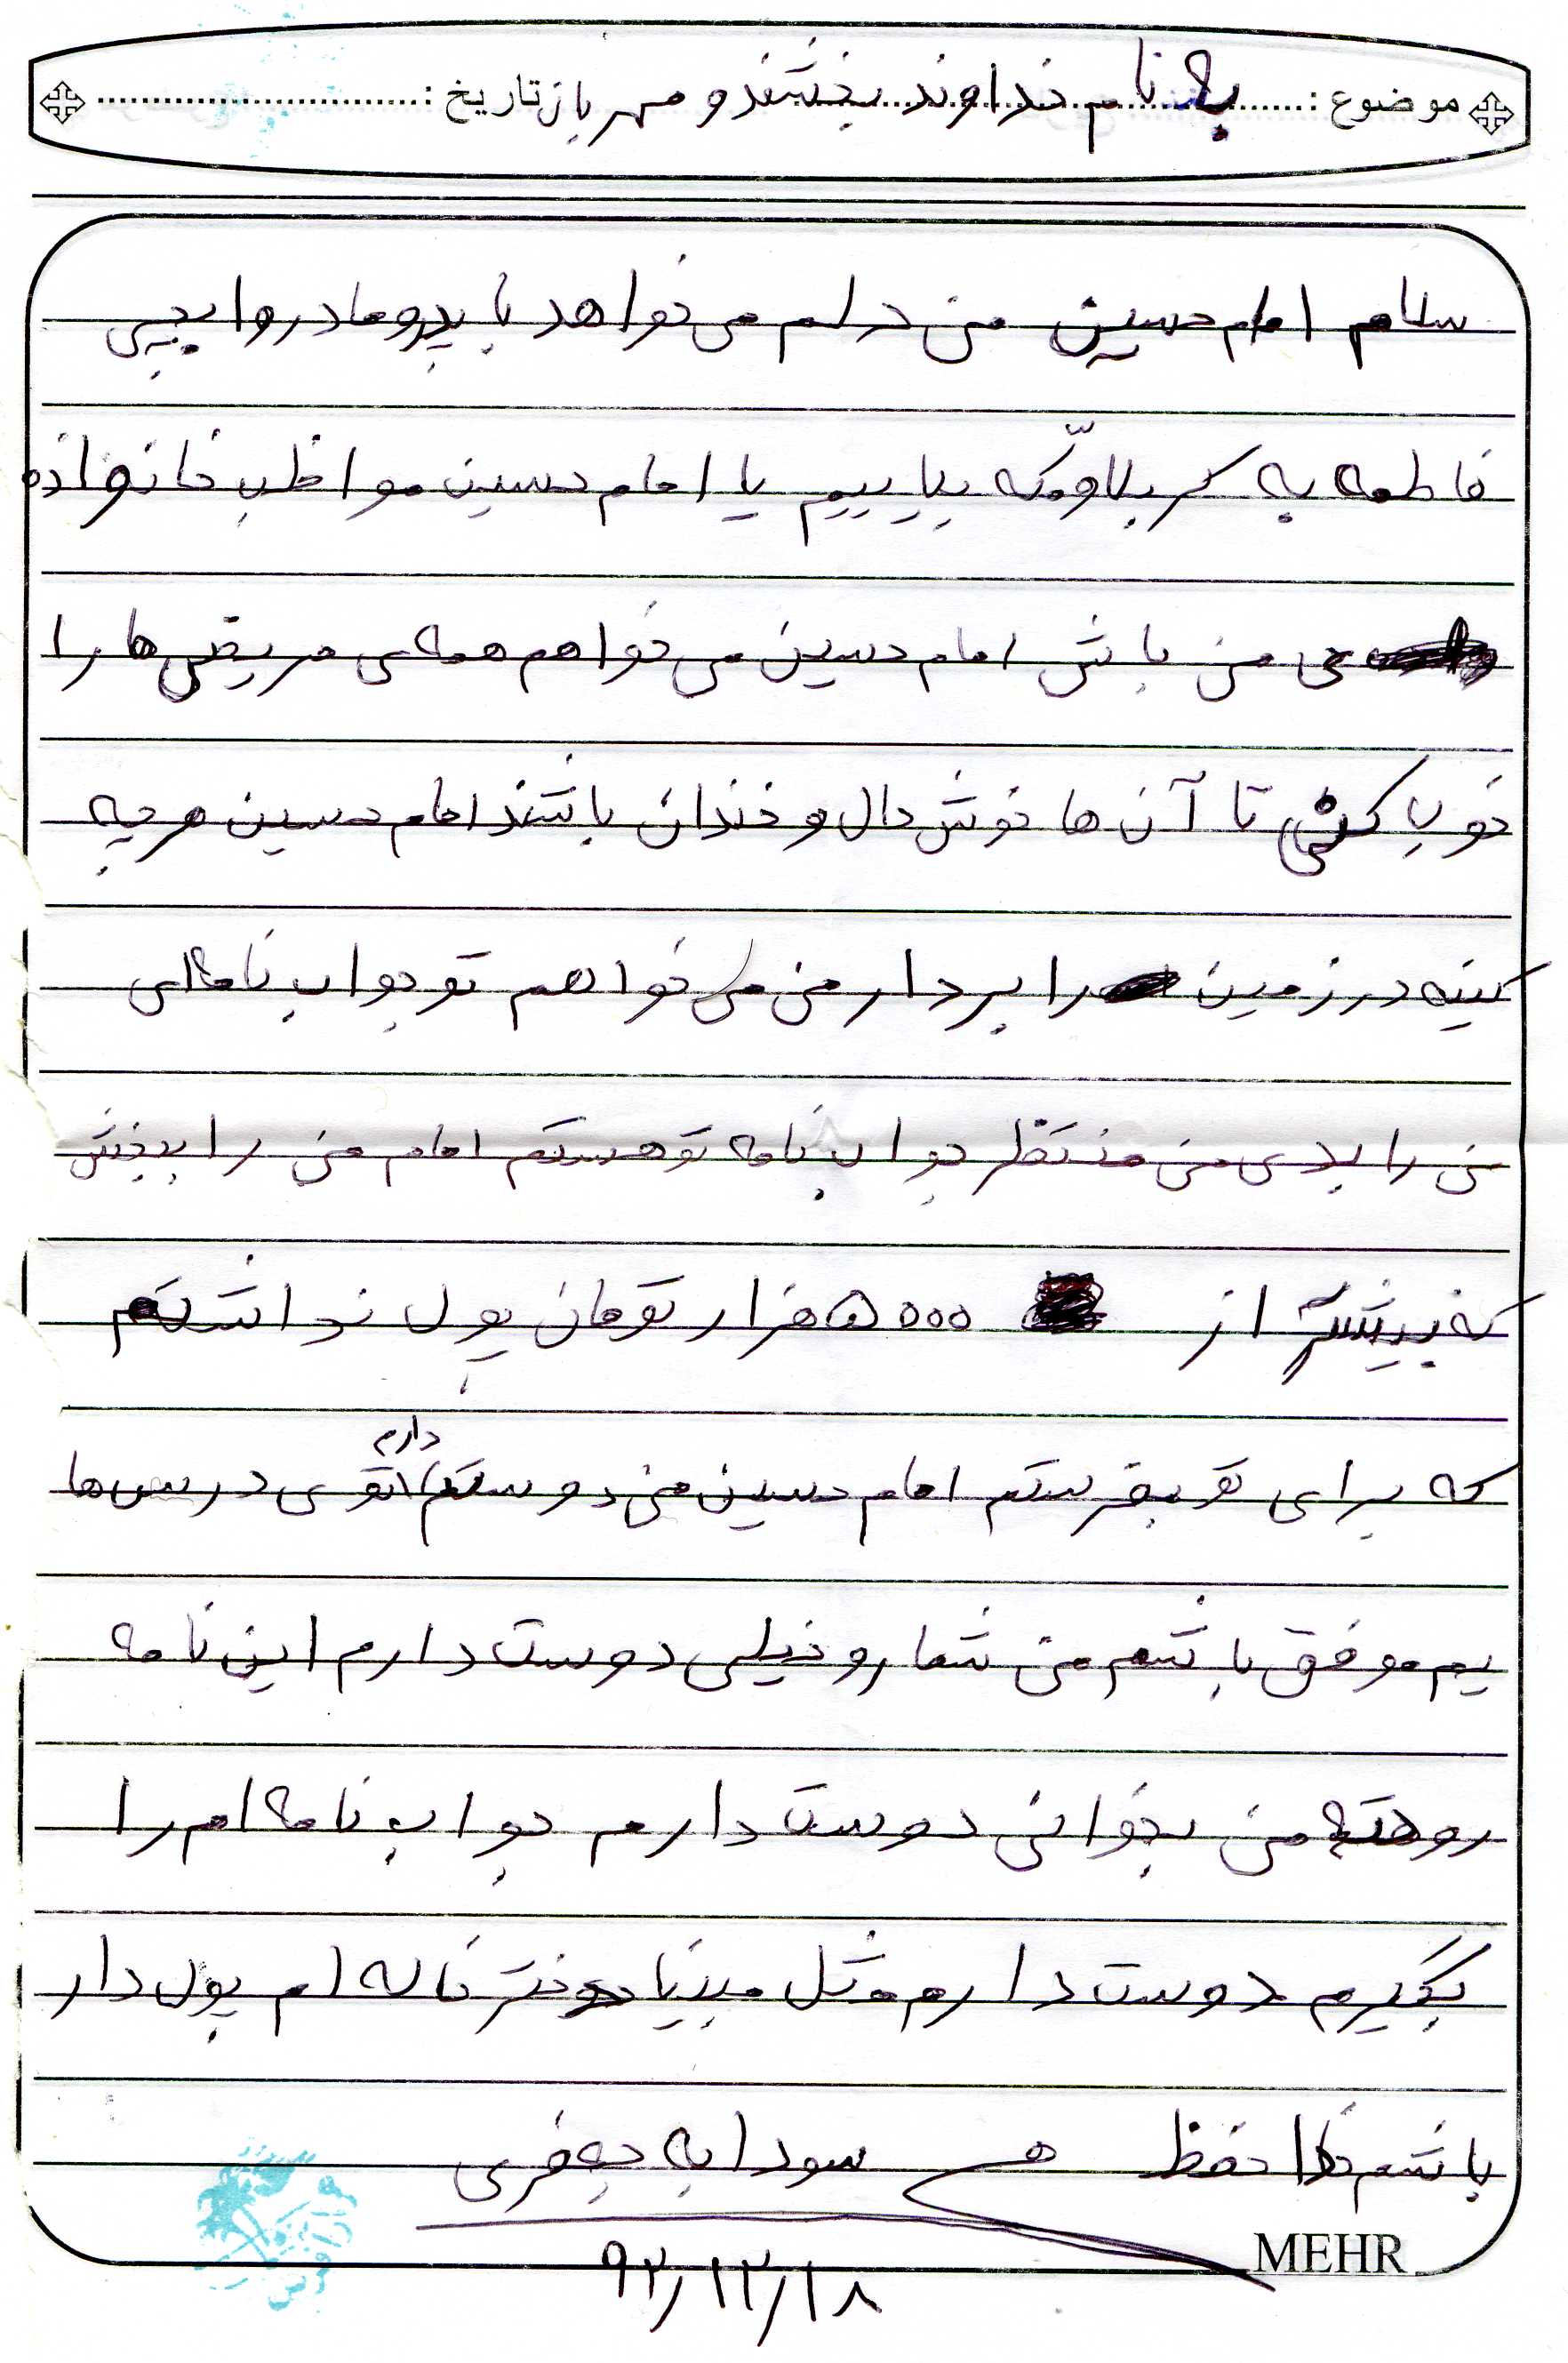 موضوع : به نام خداوند بخشندو مهربان تاریخ :
سلام امام حسین من دلم می خواهد با پدرو مادرو اپیجی
فاطمه به کربلا و مکّه بیاییم یا امام حسین مواظب خانواده
ی من باش امام حسین می خواهم همه ی مریض ها را
خوب کنی تا آن ها خوش دال و خندان باشند امام حسین هرچه
کینه در زمین را بردار من می خواهم تو جواب نامه ای
من را بدی من منتظر جواب نامه تو هستم امام من را ببخش
که بیشتر از ۵۰۰۰ هزار تومان پول نداشتم
که برای تو بفرستم امام حسین من دوست دارم توی درس ها
یم موفق باشم من شما رو خیلی دوست دارم این نامه
رو من بخوانی دوست دارم جواب نامه ام را
بگیرم دوست دارم مثل مبینا دختر خاله ام پول دار
باشم خدا حفظ سودابه جعفری
MEHR
۹۲/۱۲/۱۸